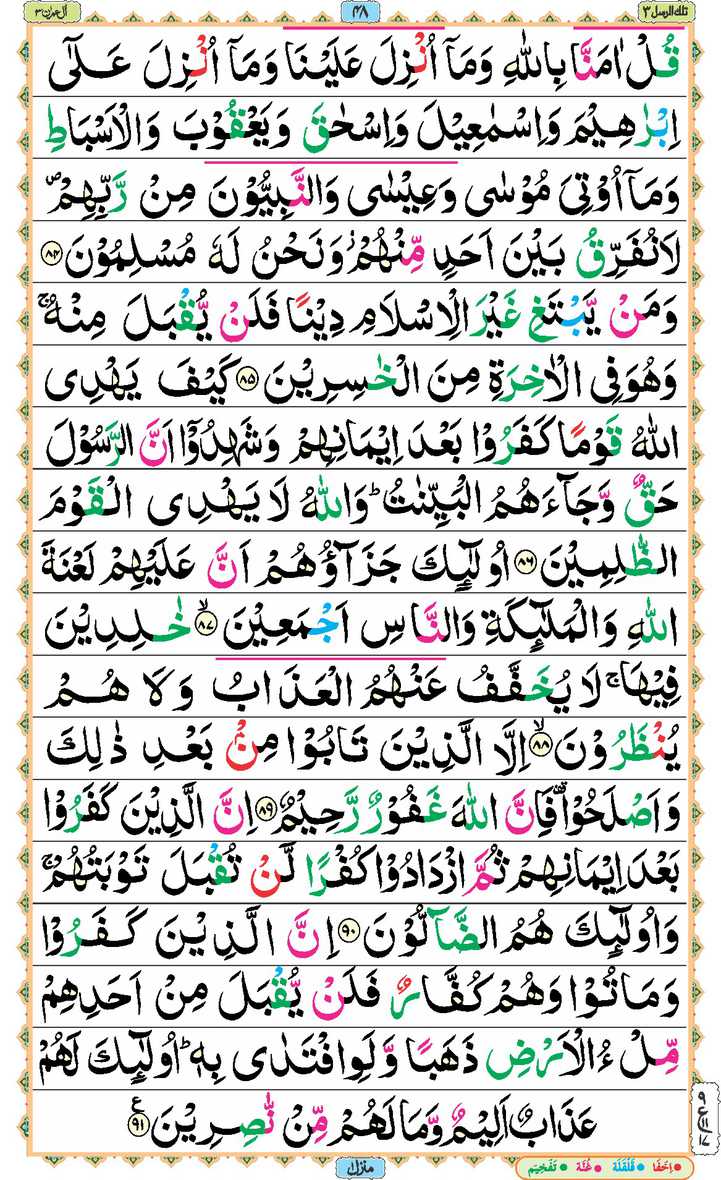 تلك الرسل ٣ ٤٨ آل عمرٰن ٣
قُلْ اٰمَنَّا بِاللّٰهِ وَمَآ اُنْزِلَ عَلَيْنَا وَمَآ اُنْزِلَ عَلٰٓى
اِبْرٰهِيْمَ وَاِسْمٰعِيْلَ وَاِسْحٰقَ وَيَعْقُوْبَ وَالْاَسْبَاطِ
وَمَآ اُوْتِىَ مُوْسٰى وَعِيْسٰى وَالنَّبِيُّوْنَ مِنْ رَّبِّهِمْ ۪
لَا نُفَرِّقُ بَيْنَ اَحَدٍ مِّنْهُمْ ۡ وَنَحْنُ لَهٗ مُسْلِمُوْنَ ٨٤
وَمَنْ يَّبْتَغِ غَيْرَ الْاِسْلَامِ دِيْنًا فَلَنْ يُّقْبَلَ مِنْهُ ۚ
وَهُوَ فِى الْاٰخِرَةِ مِنَ الْخٰسِرِيْنَ ٨٥ كَيْفَ يَهْدِى
اللّٰهُ قَوْمًا كَفَرُوْا بَعْدَ اِيْمَانِهِمْ وَشَهِدُوْٓا اَنَّ الرَّسُوْلَ
حَقٌّ وَّجَآءَهُمُ الْبَيِّنٰتُ ؕ وَاللّٰهُ لَا يَهْدِى الْقَوْمَ
الظّٰلِمِيْنَ ٨٦ اُولٰٓئِكَ جَزَآؤُهُمْ اَنَّ عَلَيْهِمْ لَعْنَةَ
اللّٰهِ وَالْمَلٰٓئِكَةِ وَالنَّاسِ اَجْمَعِيْنَ ۙ ٨٧ خٰلِدِيْنَ
فِيْهَا ۚ لَا يُخَفَّفُ عَنْهُمُ الْعَذَابُ وَلَا هُمْ
يُنْظَرُوْنَ ۙ ٨٨ اِلَّا الَّذِيْنَ تَابُوْا مِنْۢ بَعْدِ ذٰلِكَ
وَاَصْلَحُوْا ۟ فَاِنَّ اللّٰهَ غَفُوْرٌ رَّحِيْمٌ ٨٩ اِنَّ الَّذِيْنَ كَفَرُوْا
بَعْدَ اِيْمَانِهِمْ ثُمَّ ازْدَادُوْا كُفْرًا لَّنْ تُقْبَلَ تَوْبَتُهُمْ ۚ
وَاُولٰٓئِكَ هُمُ الضَّآلُّوْنَ ٩٠ اِنَّ الَّذِيْنَ كَفَرُوْا
وَمَاتُوْا وَهُمْ كُفَّارٌ فَلَنْ يُّقْبَلَ مِنْ اَحَدِهِمْ
مِّلْءُ الْاَرْضِ ذَهَبًا وَّلَوِ افْتَدٰى بِهٖ ؕ اُولٰٓئِكَ لَهُمْ
عَذَابٌ اَلِيْمٌ وَّمَا لَهُمْ مِّنْ نّٰصِرِيْنَ ٩١ ع
منزل ١
اِخْفَا قَلْقَلَة غُنَّة تَفْخِيْم